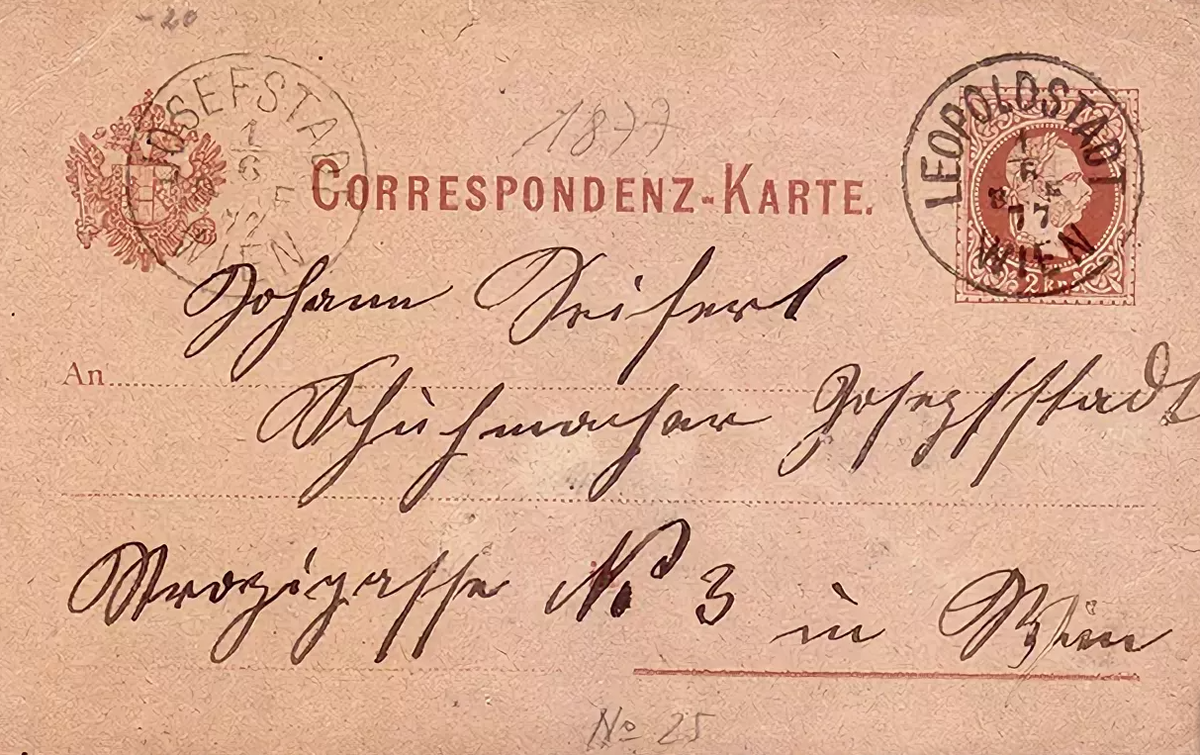 -20
JOSEFSTADT
1
6
WIEN
1877
CORRESPONDENZ-KARTE.
LEOPOLDSTADT
1
6
77
WIEN
2 kr
Johann Seifert
An
Schuhmacher Josephstadt
Strozigasse No 3 in Wien
No 25